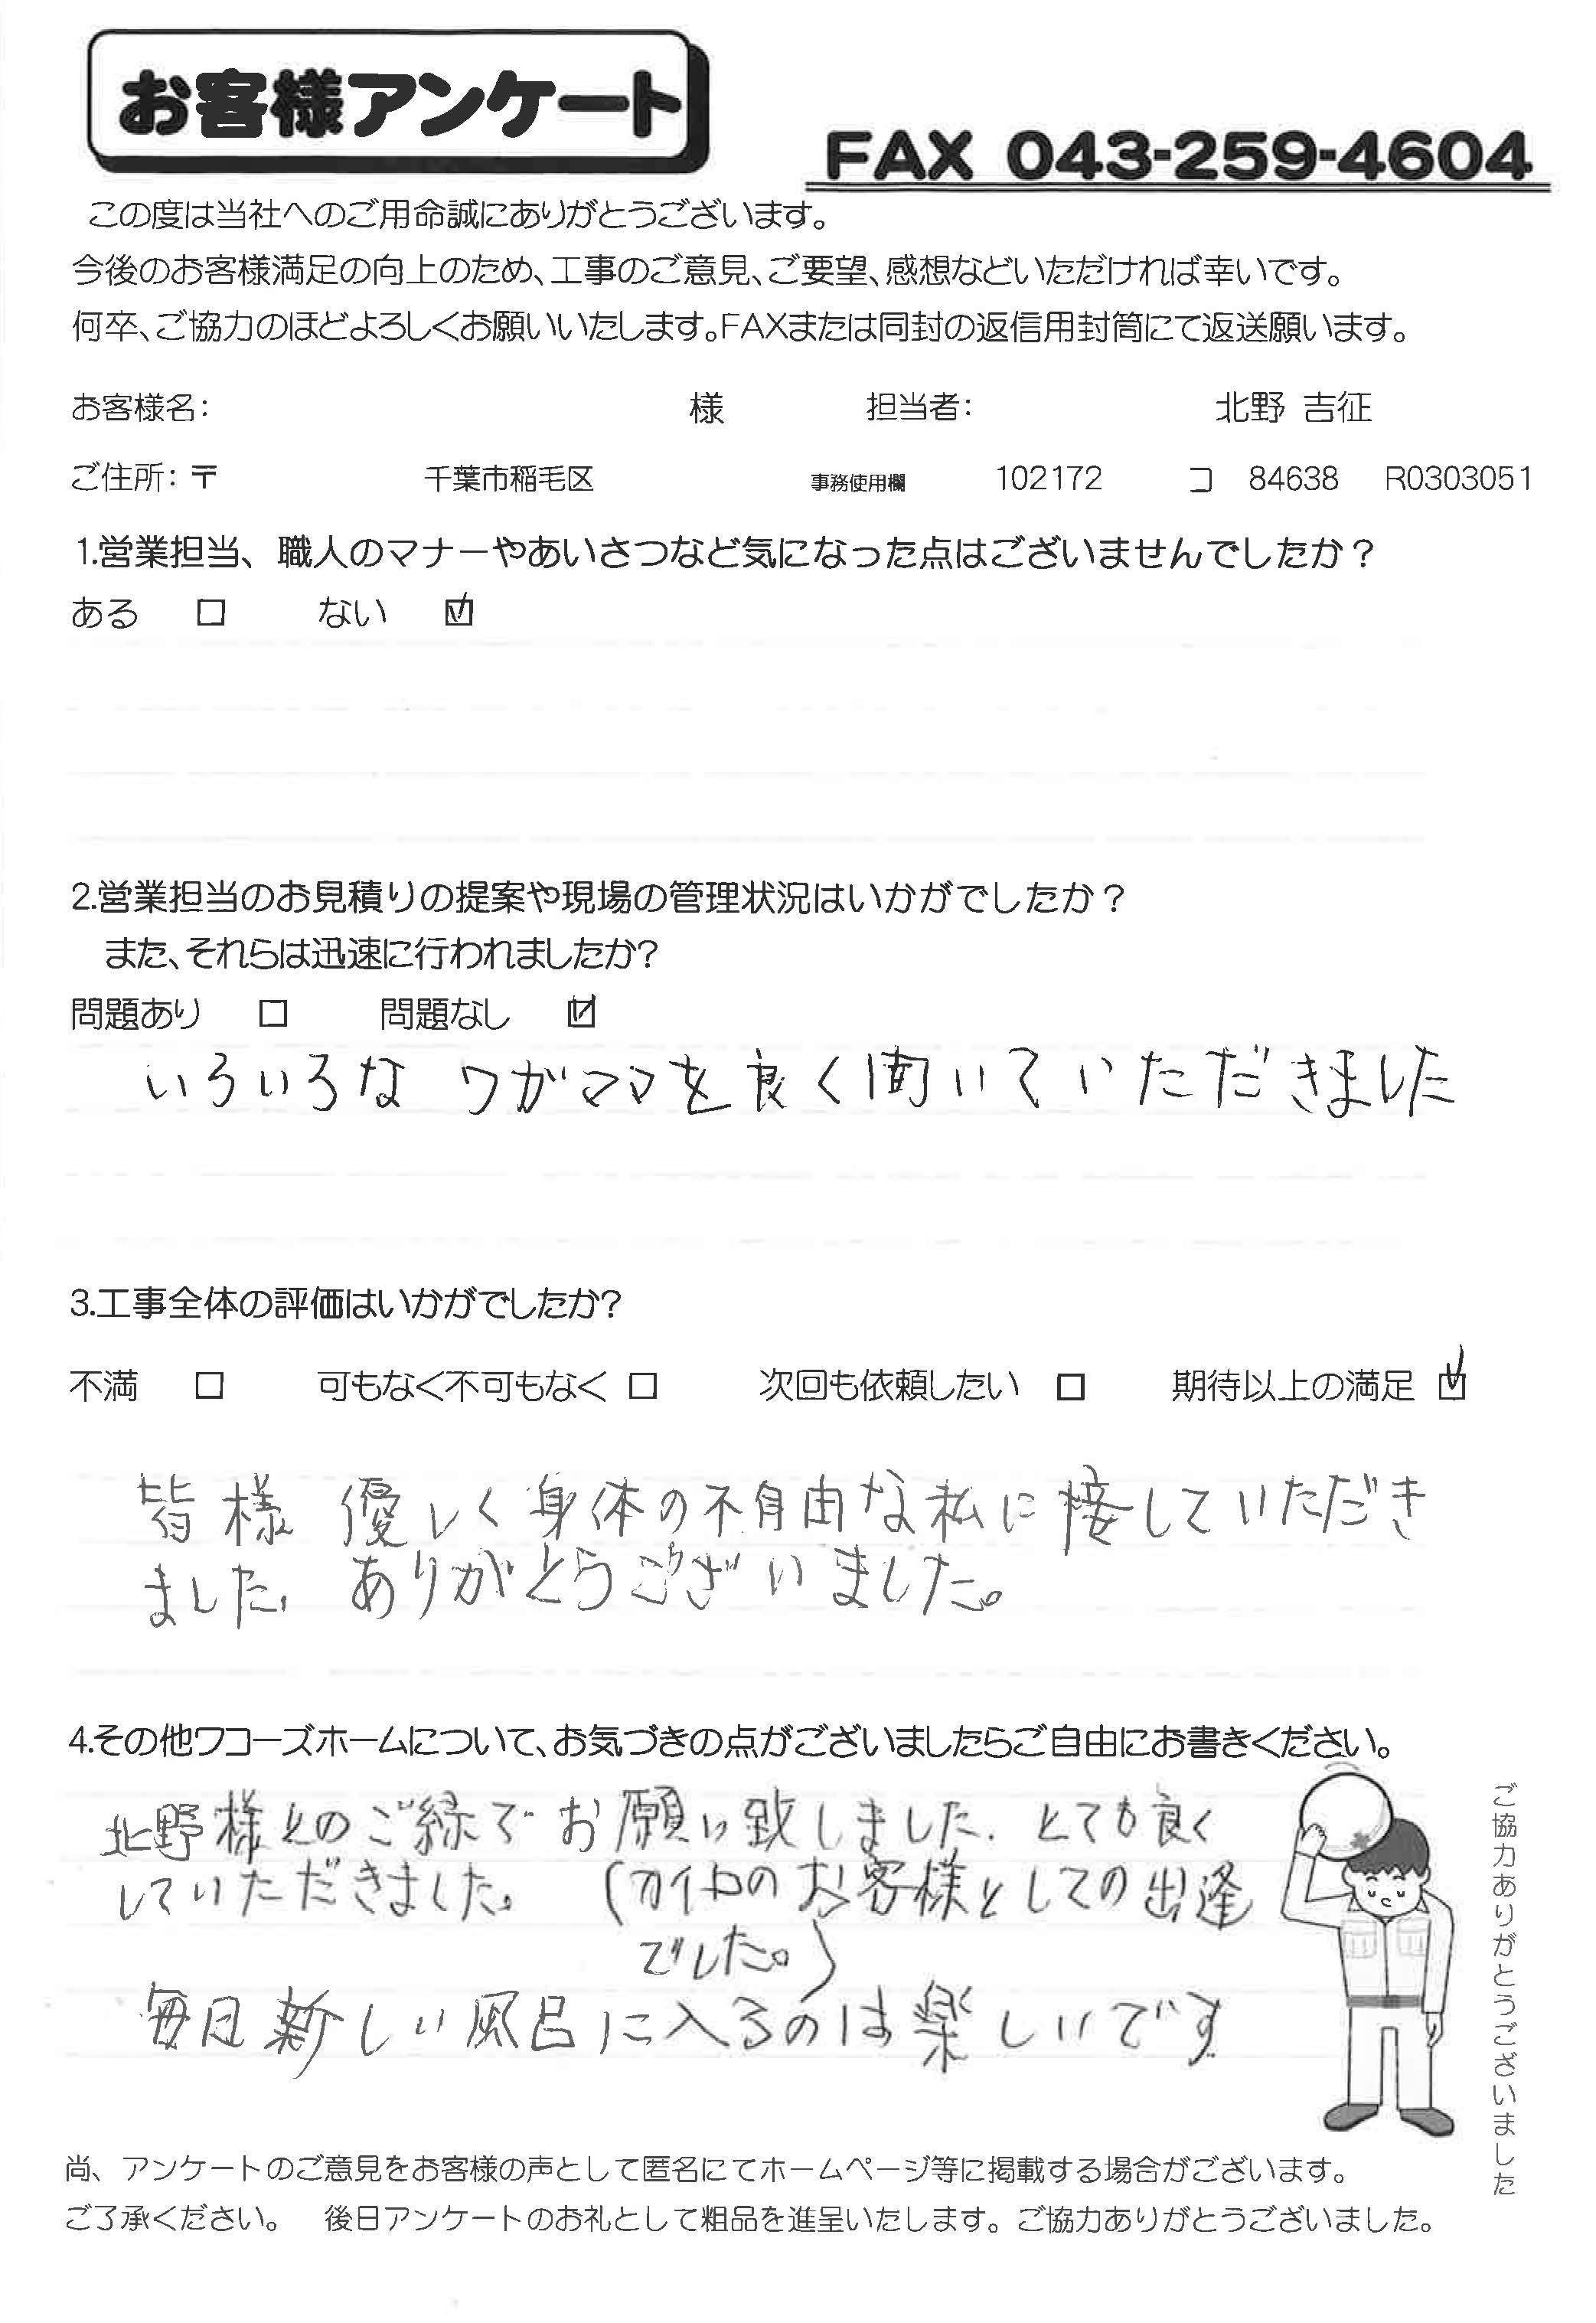 お客様アンケート
FAX 043-259-4604
この度は当社へのご用命誠にありがとうございます。
今後のお客様満足の向上のため、工事のご意見、ご要望、感想などいただければ幸いです。
何卒、ご協力のほどよろしくお願いいたします。FAXまたは同封の返信用封筒にて返送願います。
お客様名： 様 担当者： 北野 吉征
ご住所：〒 千葉市稲毛区 事務使用欄 102172 コ 84638 R0303051
1.営業担当、職人のマナーやあいさつなど気になった点はございませんでしたか？
ある □ ない ☑
2.営業担当のお見積りの提案や現場の管理状況はいかがでしたか？
また、それらは迅速に行われましたか?
問題あり □ 問題なし ☑
いろいろな ワガママを良く聞いていただきました
3.工事全体の評価はいかがでしたか?
不満 □ 可もなく不可もなく □ 次回も依頼したい □ 期待以上の満足 ☑
皆様 優しく身体の不自由な私に接していただき
ました。ありがとうございました。
4.その他ワコーズホームについて、お気づきの点がございましたらご自由にお書きください。
北野様とのご縁でお願い致しました。とても良く
していただきました。 (カイロのお客様としての出逢
でした。)
毎日新しい風呂に入るのは楽しいです
ご協力ありがとうございました
尚、アンケートのご意見をお客様の声として匿名にてホームページ等に掲載する場合がございます。
ご了承ください。 後日アンケートのお礼として粗品を進呈いたします。ご協力ありがとうございました。